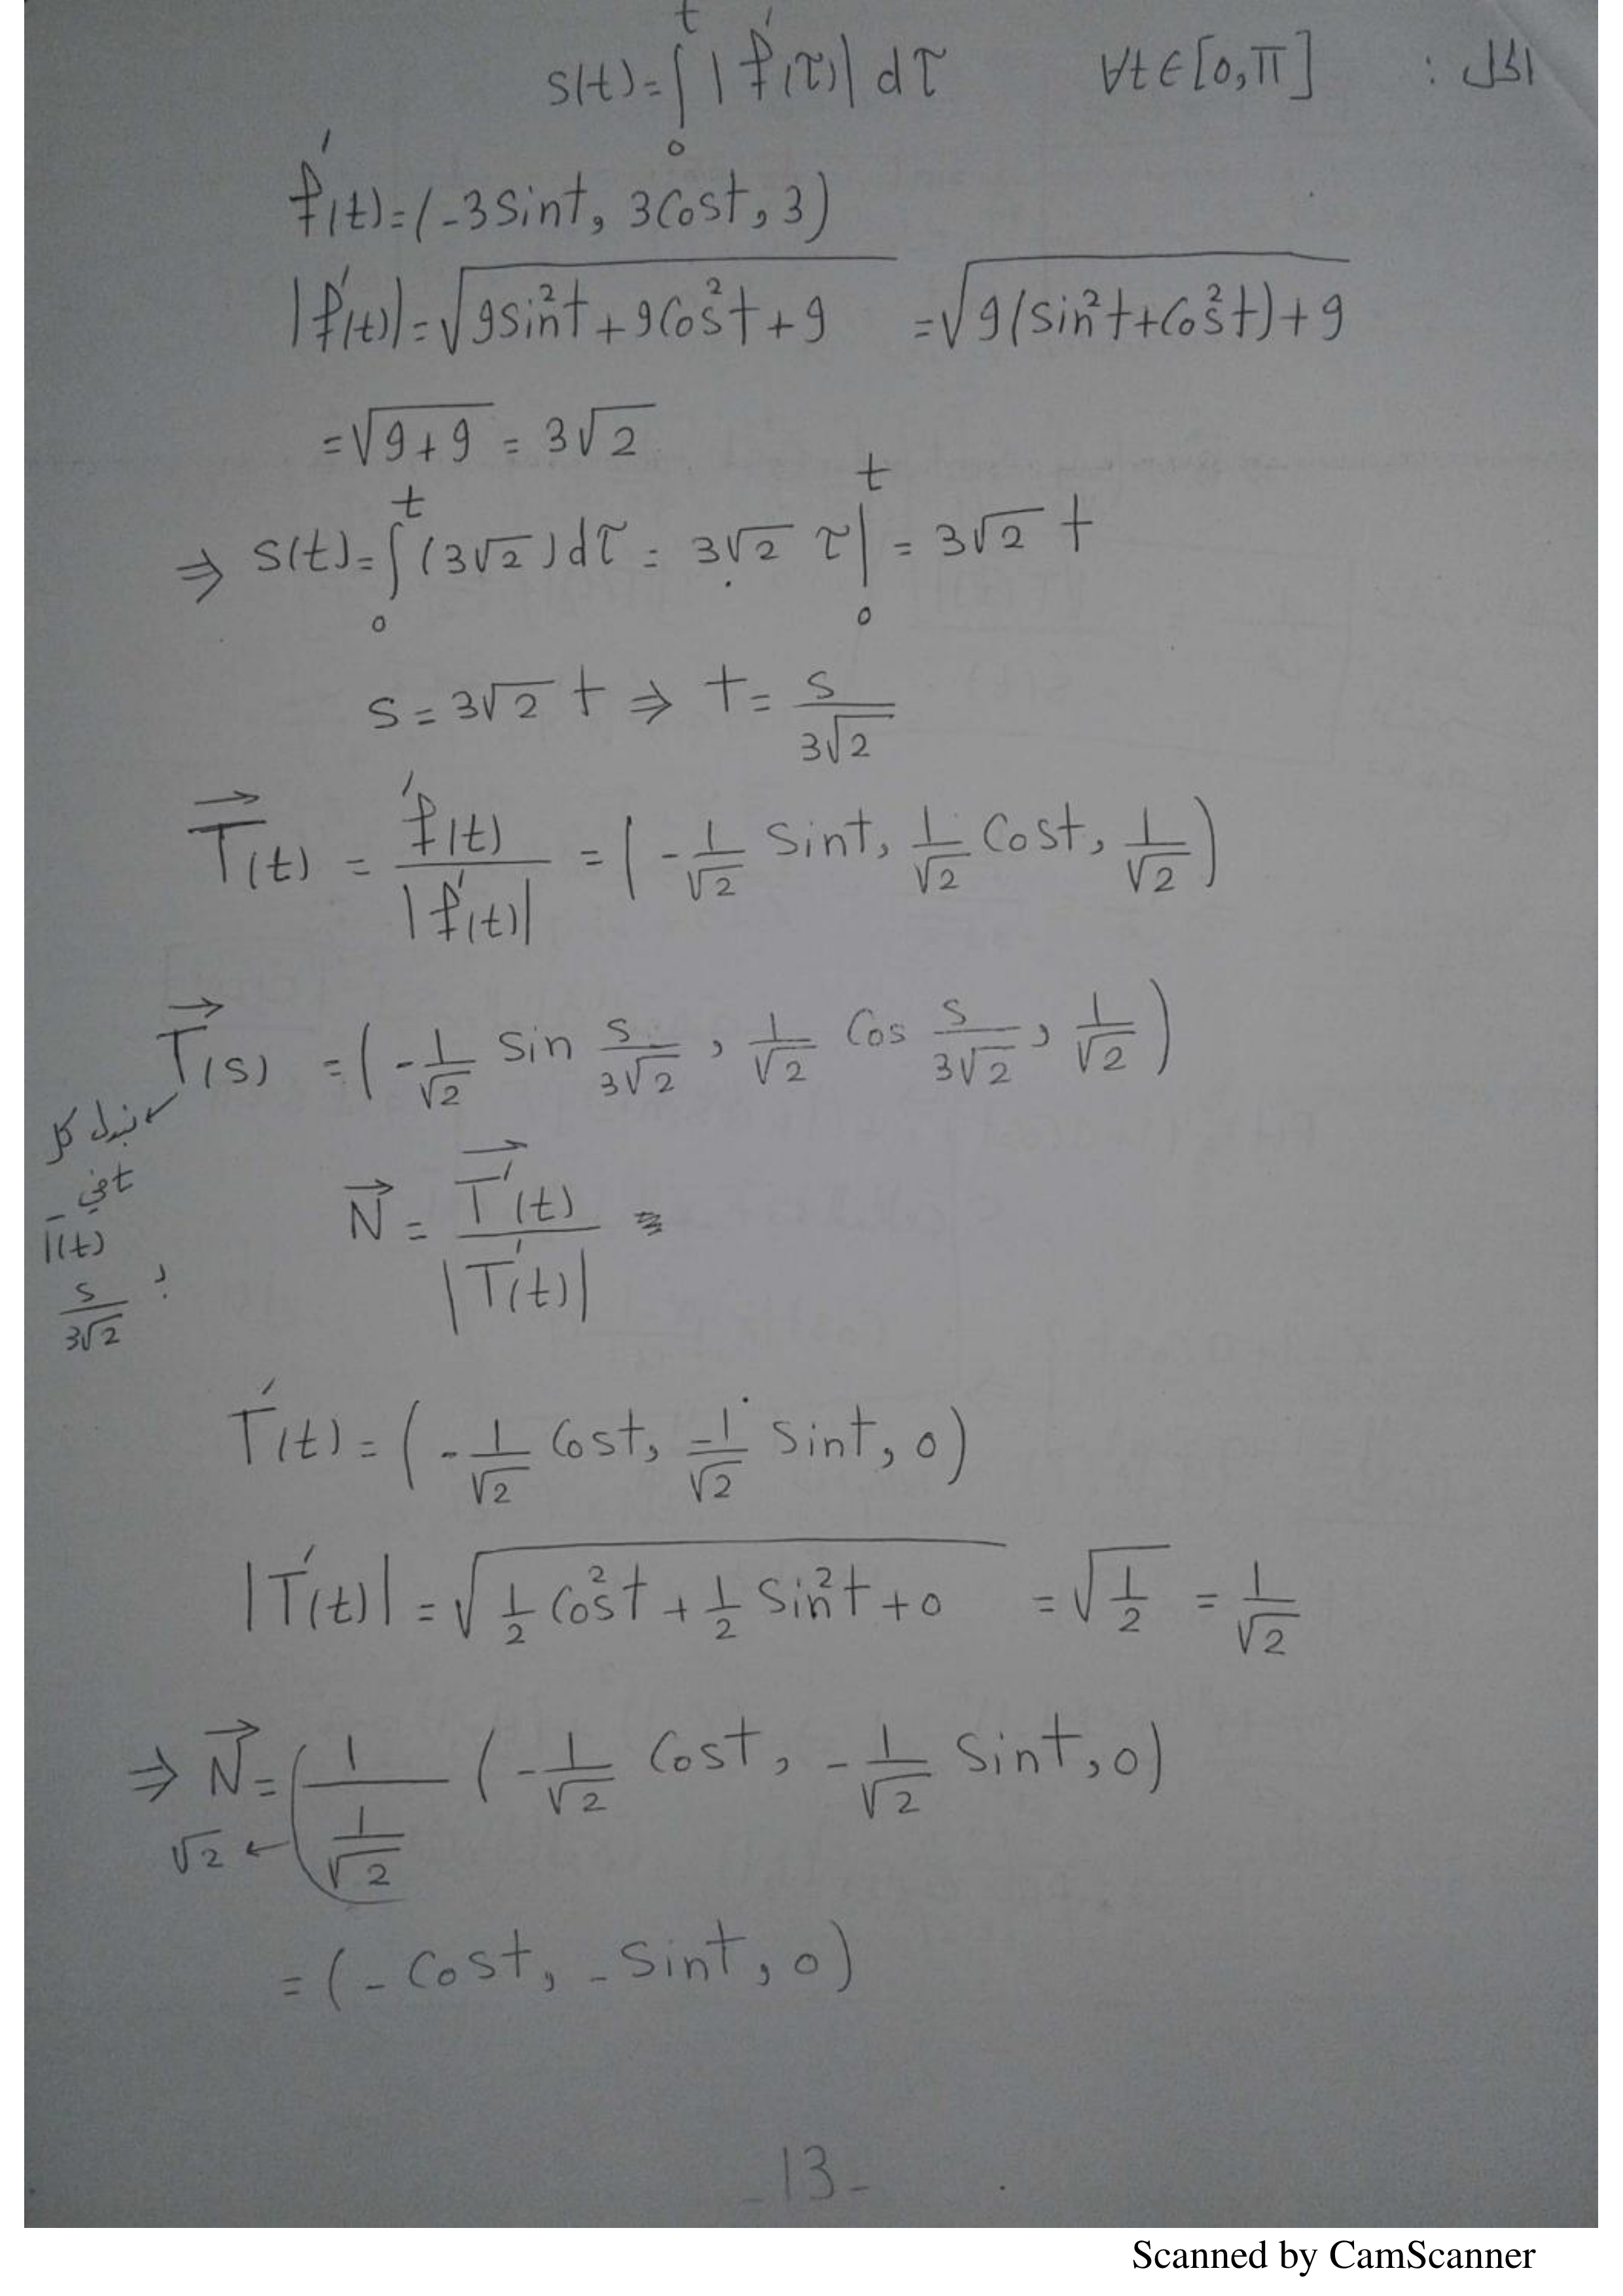 الحل : s(t)=∫₀ᵗ |f'(τ)| dτ ∀t∈[0,π]
f'(t)=(-3sint, 3cost, 3)
|f'(t)|=√(9sin²t+9cos²t+9) =√(9(sin²t+cos²t)+9)
=√(9+9) = 3√2
⇒ s(t)=∫₀ᵗ (3√2)dτ = 3√2 τ|₀ᵗ = 3√2 t
s=3√2 t ⇒ t= s/(3√2)
T⃗(t) = f'(t)/|f'(t)| = (-1/√2 sint, 1/√2 cost, 1/√2)
T⃗(s) =(-1/√2 sin s/(3√2), 1/√2 cos s/(3√2), 1/√2)
نبدل كل
t في
T(t)
بـ s/(3√2)
N⃗ = T⃗'(t)/|T'(t)| =
T'(t)=(-1/√2 cost, -1/√2 sint, 0)
|T'(t)|=√(1/2 cos²t+1/2 sin²t+0) =√(1/2) = 1/√2
⇒ N⃗= 1/(1/√2) (-1/√2 cost, -1/√2 sint, 0)
√2 ←
=(-cost, -sint, 0)
-13-
Scanned by CamScanner